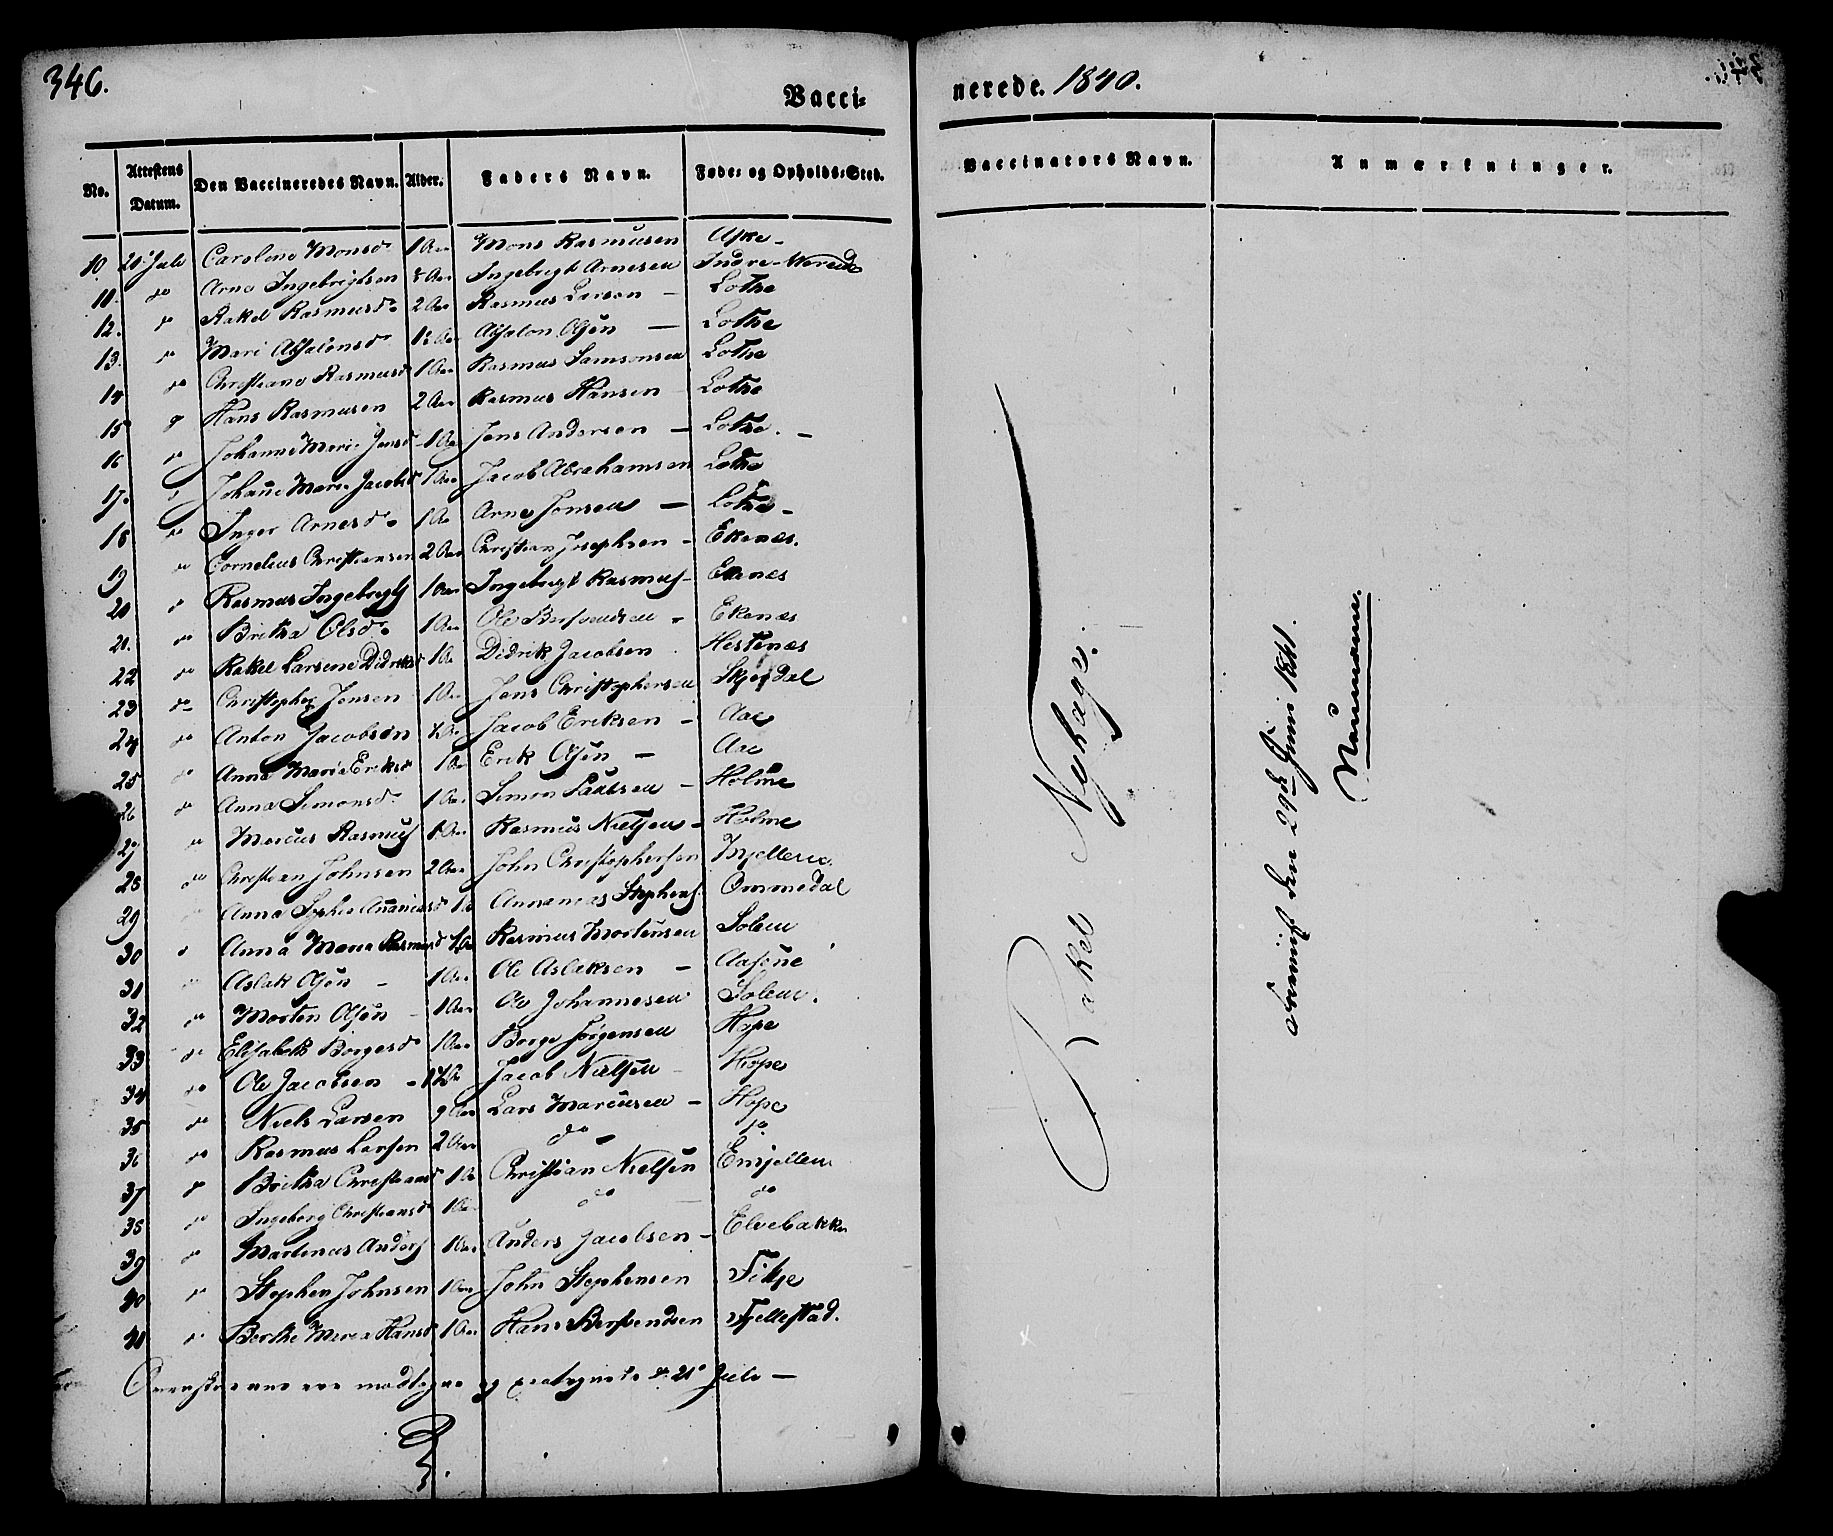 346.
Vacci-
nerede. 1840.
No. Attestens Datum. Den Vaccineredes Navn. Alder. Faders Navn. Føde- og Opholds-Sted.
Vaccinators Navn. Anmærkninger.
10 20 Juli Caroline Monsd. 1 Aar Mons Rasmusen
11. do Arne Ingebrigtsen 8 Aar Ingebrigt Arnesen Indre
12. do Rakel Rasmusd. 2 Aar Rasmus Larsen — Lothe
13. do Mari Absalonsd Absalon Olsen — Lothe
14 do Christiane Rasmusd 1 Aar Rasmus Samsonsen Lothe
15 Hans Rasmusen 2 Aar Rasmus Hansen Lothe
16 do Johanne Marie Jensd 1 Aar Jens Andersen — Lothe. —
17. Johanne Marie Jacobsd 1 Aar Jacob Abrahamsen Lothe
18 do Inger Arnesd. 1 Aar Arne Jonsen — Lothe —
19 do Cornelius Christiansen 2 Aar Christian Josephsen — Ekenæs.
20 Rasmus Ingebrigts 1 Aar Ingebrigt Rasmus Ekenæs
21. do Britha Olsd. 1 Aar Ole Ekenæs
22 do Rakel Larsine Didriksd 1 Aar Didrik Jacobsen Hestenæs
23 do Christopher Jensen 1 Aar Jens Christophersen
24 do Anton Jacobsen Jacob Eriksen — Aae
25 do Anna Marie Eriksd 1 Aar Erik Olsen — Aae
26 do Anna Simonsd. 1 Aar Simon Paulsen — Holme
27 do Marcus Rasmus Rasmus Nielsen — Holme
28 do Christian Johnsen 2 Aar John Christophersen
29 Anna Sophie Ananiasd Ananias Stephens. Ommedal
30 Anna Maria Rasmusd Rasmus Mortensen Solem
31 Aslak Olsen — 1 Aar Ole Aslaksen — Aasene
32 do Morten Olsen 1 Aar Ole Johannesen Solem.
33 do Elisabeth Borgesd 1 Aar Borge Jørgensen Hope
34 do Ole Jacobsen Jacob Nielsen Hope
35 do Niels Larsen 9 Aar Lars Marcusen — Hope
36 do Rasmus Larsen 2 Aar do do
37 Britha Christiansd 1 Aar Christian Nielsen
38 do Ingeborg Christiansd 1 Aar do do
39 do Martinus Anders 1 Aar Anders Jacobsen — Elvebakke
40 Stephen Johnsen 1 Aar John Stephensen
41 Berthe Maria Hansd 1 Aar Hans Bersvendsen Fjellestad.
21 Juli —
Rakel Nyhage.
den 29de Juni 1841.
Naumann.